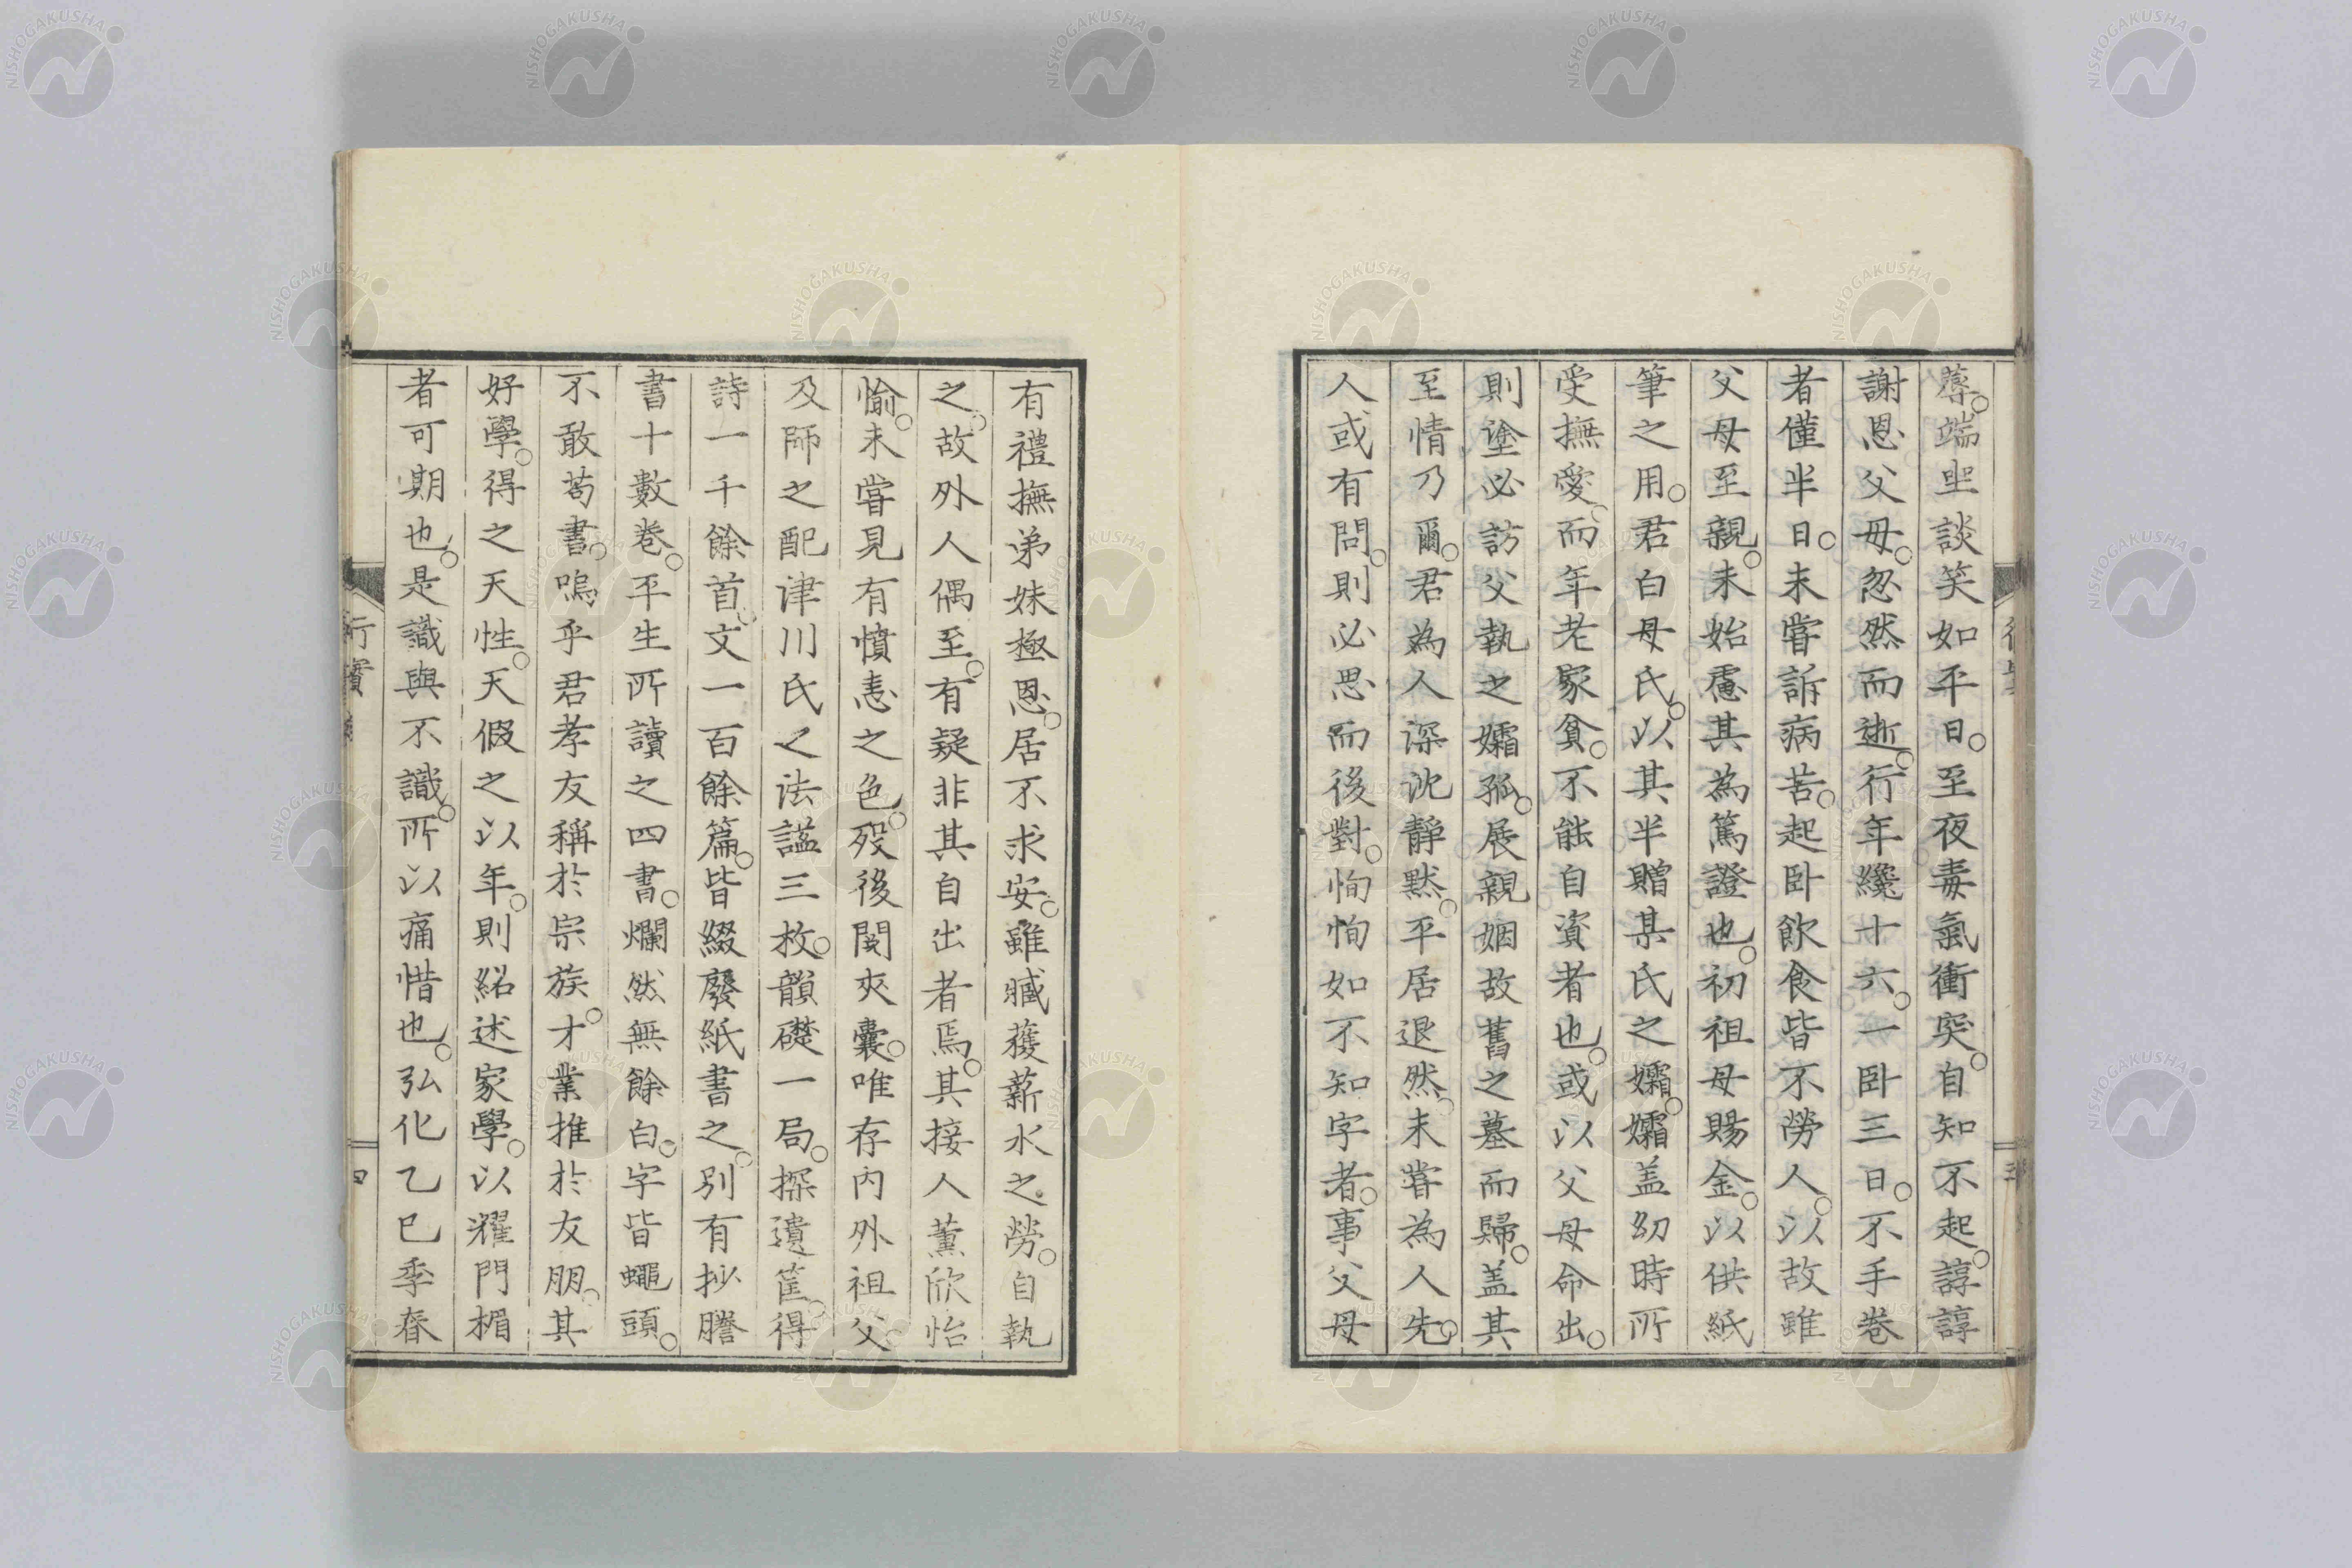 蓐。端坐談笑如平日。至夜毒氣衝突。自知不起。諄諄
謝恩父母。忽然而逝。行年纔十六。一臥三日。不手卷
者僅半日。未嘗訴病苦。起臥飲食皆不勞人。以故雖
父母至親。未始慮其為篤證也。初祖母賜金。以供紙
筆之用。君白母氏。以其半贈某氏之孀。孀盖幼時所
受撫愛。而年老家貧。不能自資者也。或以父母命出。
則塗必訪父執之孀孤。展親姻故舊之墓而歸。盖其
至情乃爾。君為人深沈靜默。平居退然。未嘗為人先。
人或有問。則必思而後對。恂恂如不知字者。事父母
三
有禮撫弟妹極恩。居不求安。雖臧獲薪水之勞。自執
之。故外人偶至。有疑非其自出者焉。其接人薰欣怡
愉。未嘗見有憤恚之色。歿後閱夾囊。唯存內外祖父
及師之配津川氏之法謚三枚。韻礎一局。探遺筐。得
詩一千餘首。文一百餘篇。皆綴廢紙書之。別有抄謄
書十數卷。平生所讀之四書。爛然無餘白。字皆蠅頭。
不敢苟書。嗚乎君孝友稱於宗族。才業推於友朋。其
好學。得之天性。天假之以年。則紹述家學。以耀門楣
者可期也。是識與不識。所以痛惜也。弘化乙巳季春
行實
四
NISHOGAKUSHA